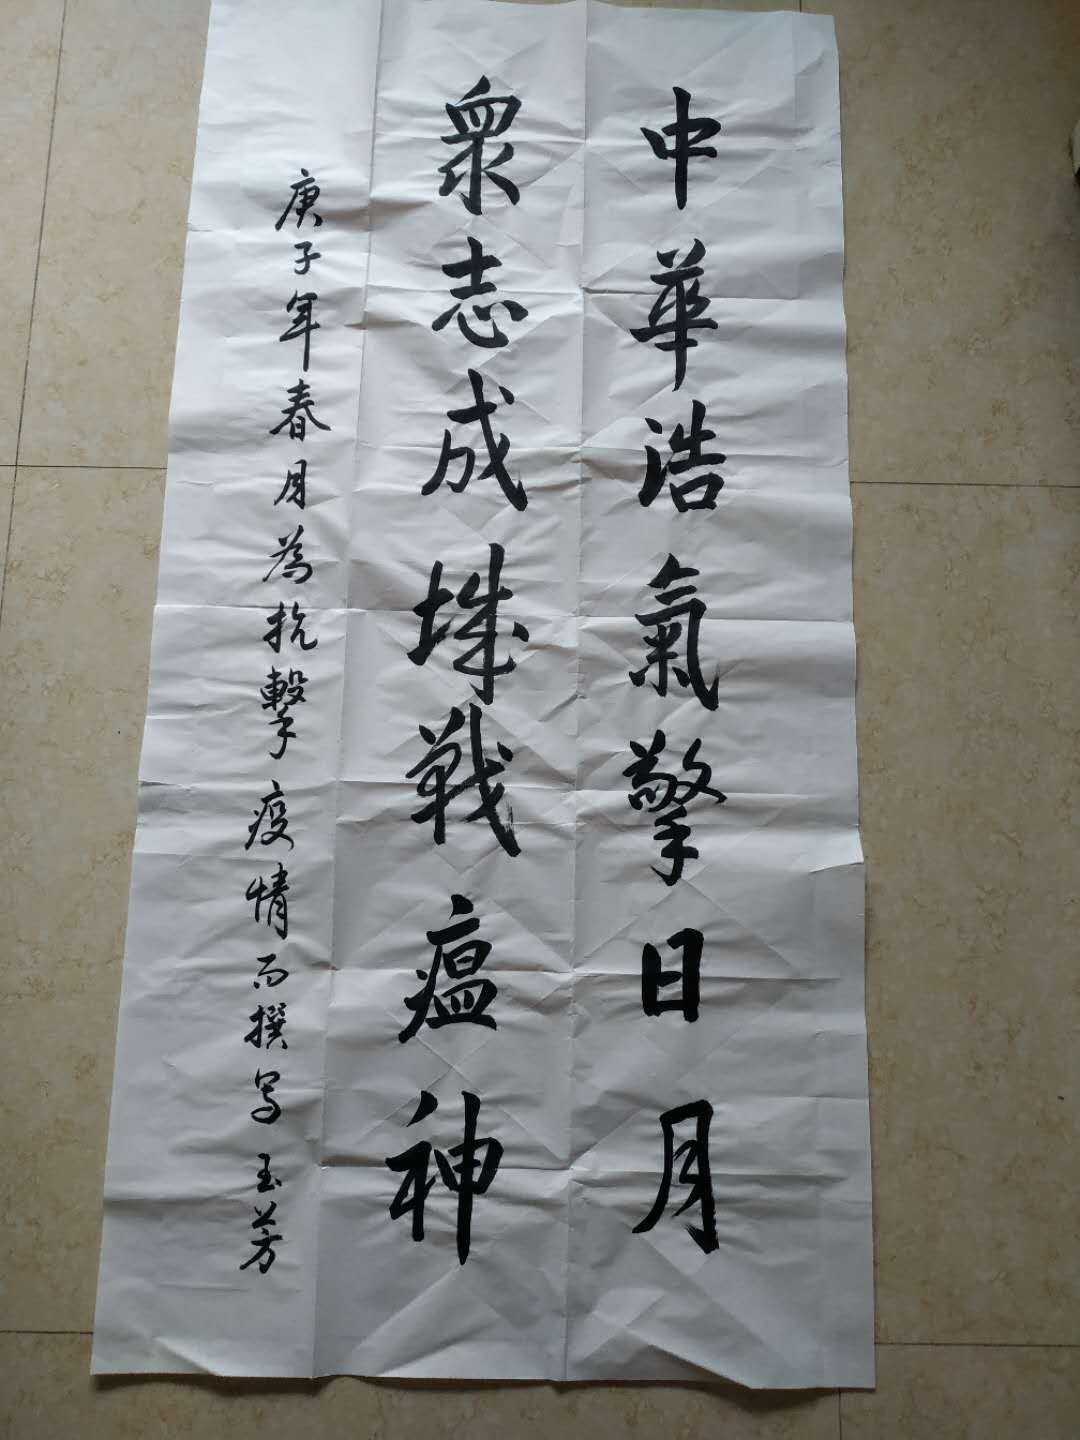 中華浩氣擎日月
眾志成城戰瘟神
庚子年春月為抗擊疫情而撰写 玉芳